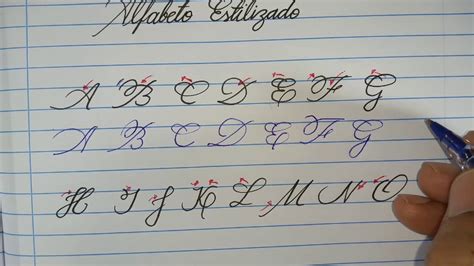 Alfabeto Estilizado
A B C D E F G
A B C D E F G
H I J K L M N O